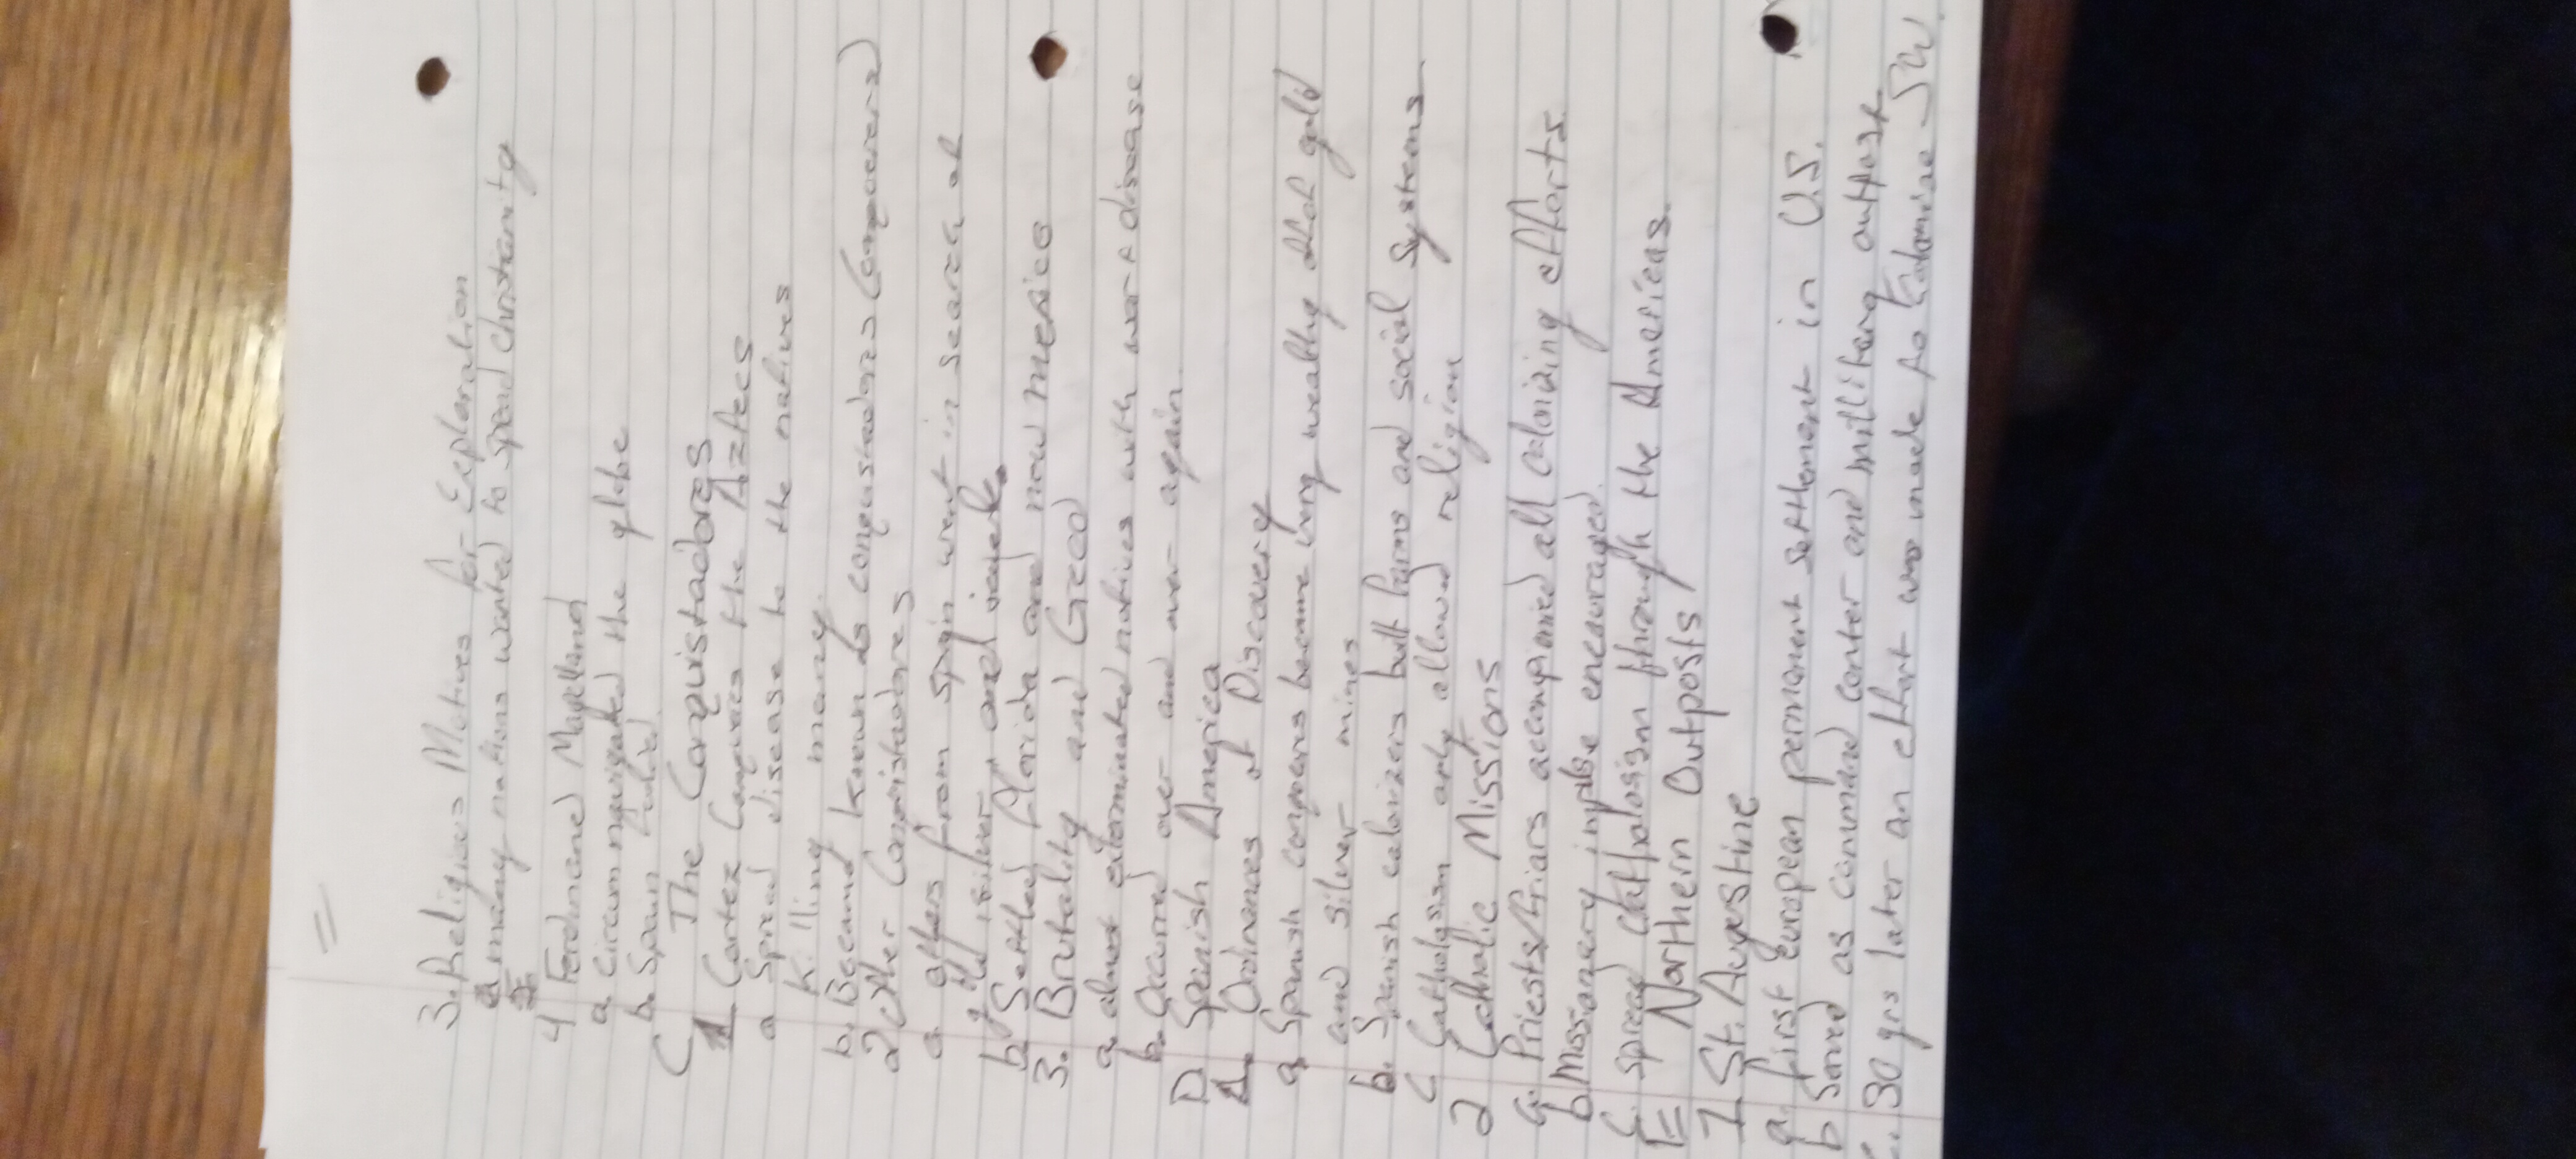 3. Religious Motives for Exploration
a many nations wanted to spread christianity
4 Ferdinand Magelland
a. Circumnavigated the globe
b. Spain
C The Conquistadores
1 Cortez Conquers the Aztecs
a Spread disease to the natives
Killing many.
b. Became known as conquistadors (conquerers)
2 Other Conquistadores
a. others from spain went in search of
gold, silver, and
b Settled florida and new mexico
3. Brutality and Greed
a. almost exterminated natives with war & disease
b. Occurred over and over again.
D Spanish America
1. Ordinances of Discovery
a. Spanish conquers became very wealthy off of gold
and silver mines
b. Spanish colonizers built farms and social systems
c Catholosism only allowed religion
2 Catholic Missions
a. Priests/friars accompanied all colonizing efforts
b Missionary impulse encouraged.
c. spread catholosism through the Americas.
E Northern Outposts
1 St. Augustine
a. first European permanent settlement in U.S.
b Served as command center and millitary outpost
c. 30 yrs later an effort was made to Colonise SW.